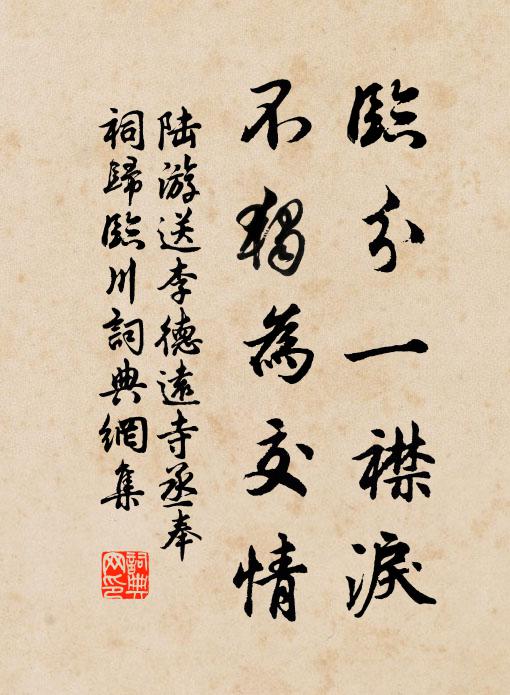 臨分一襟淚
不獨為交情
陆游送李德遠寺丞奉
祠歸臨川詞典網集
詞典
网印